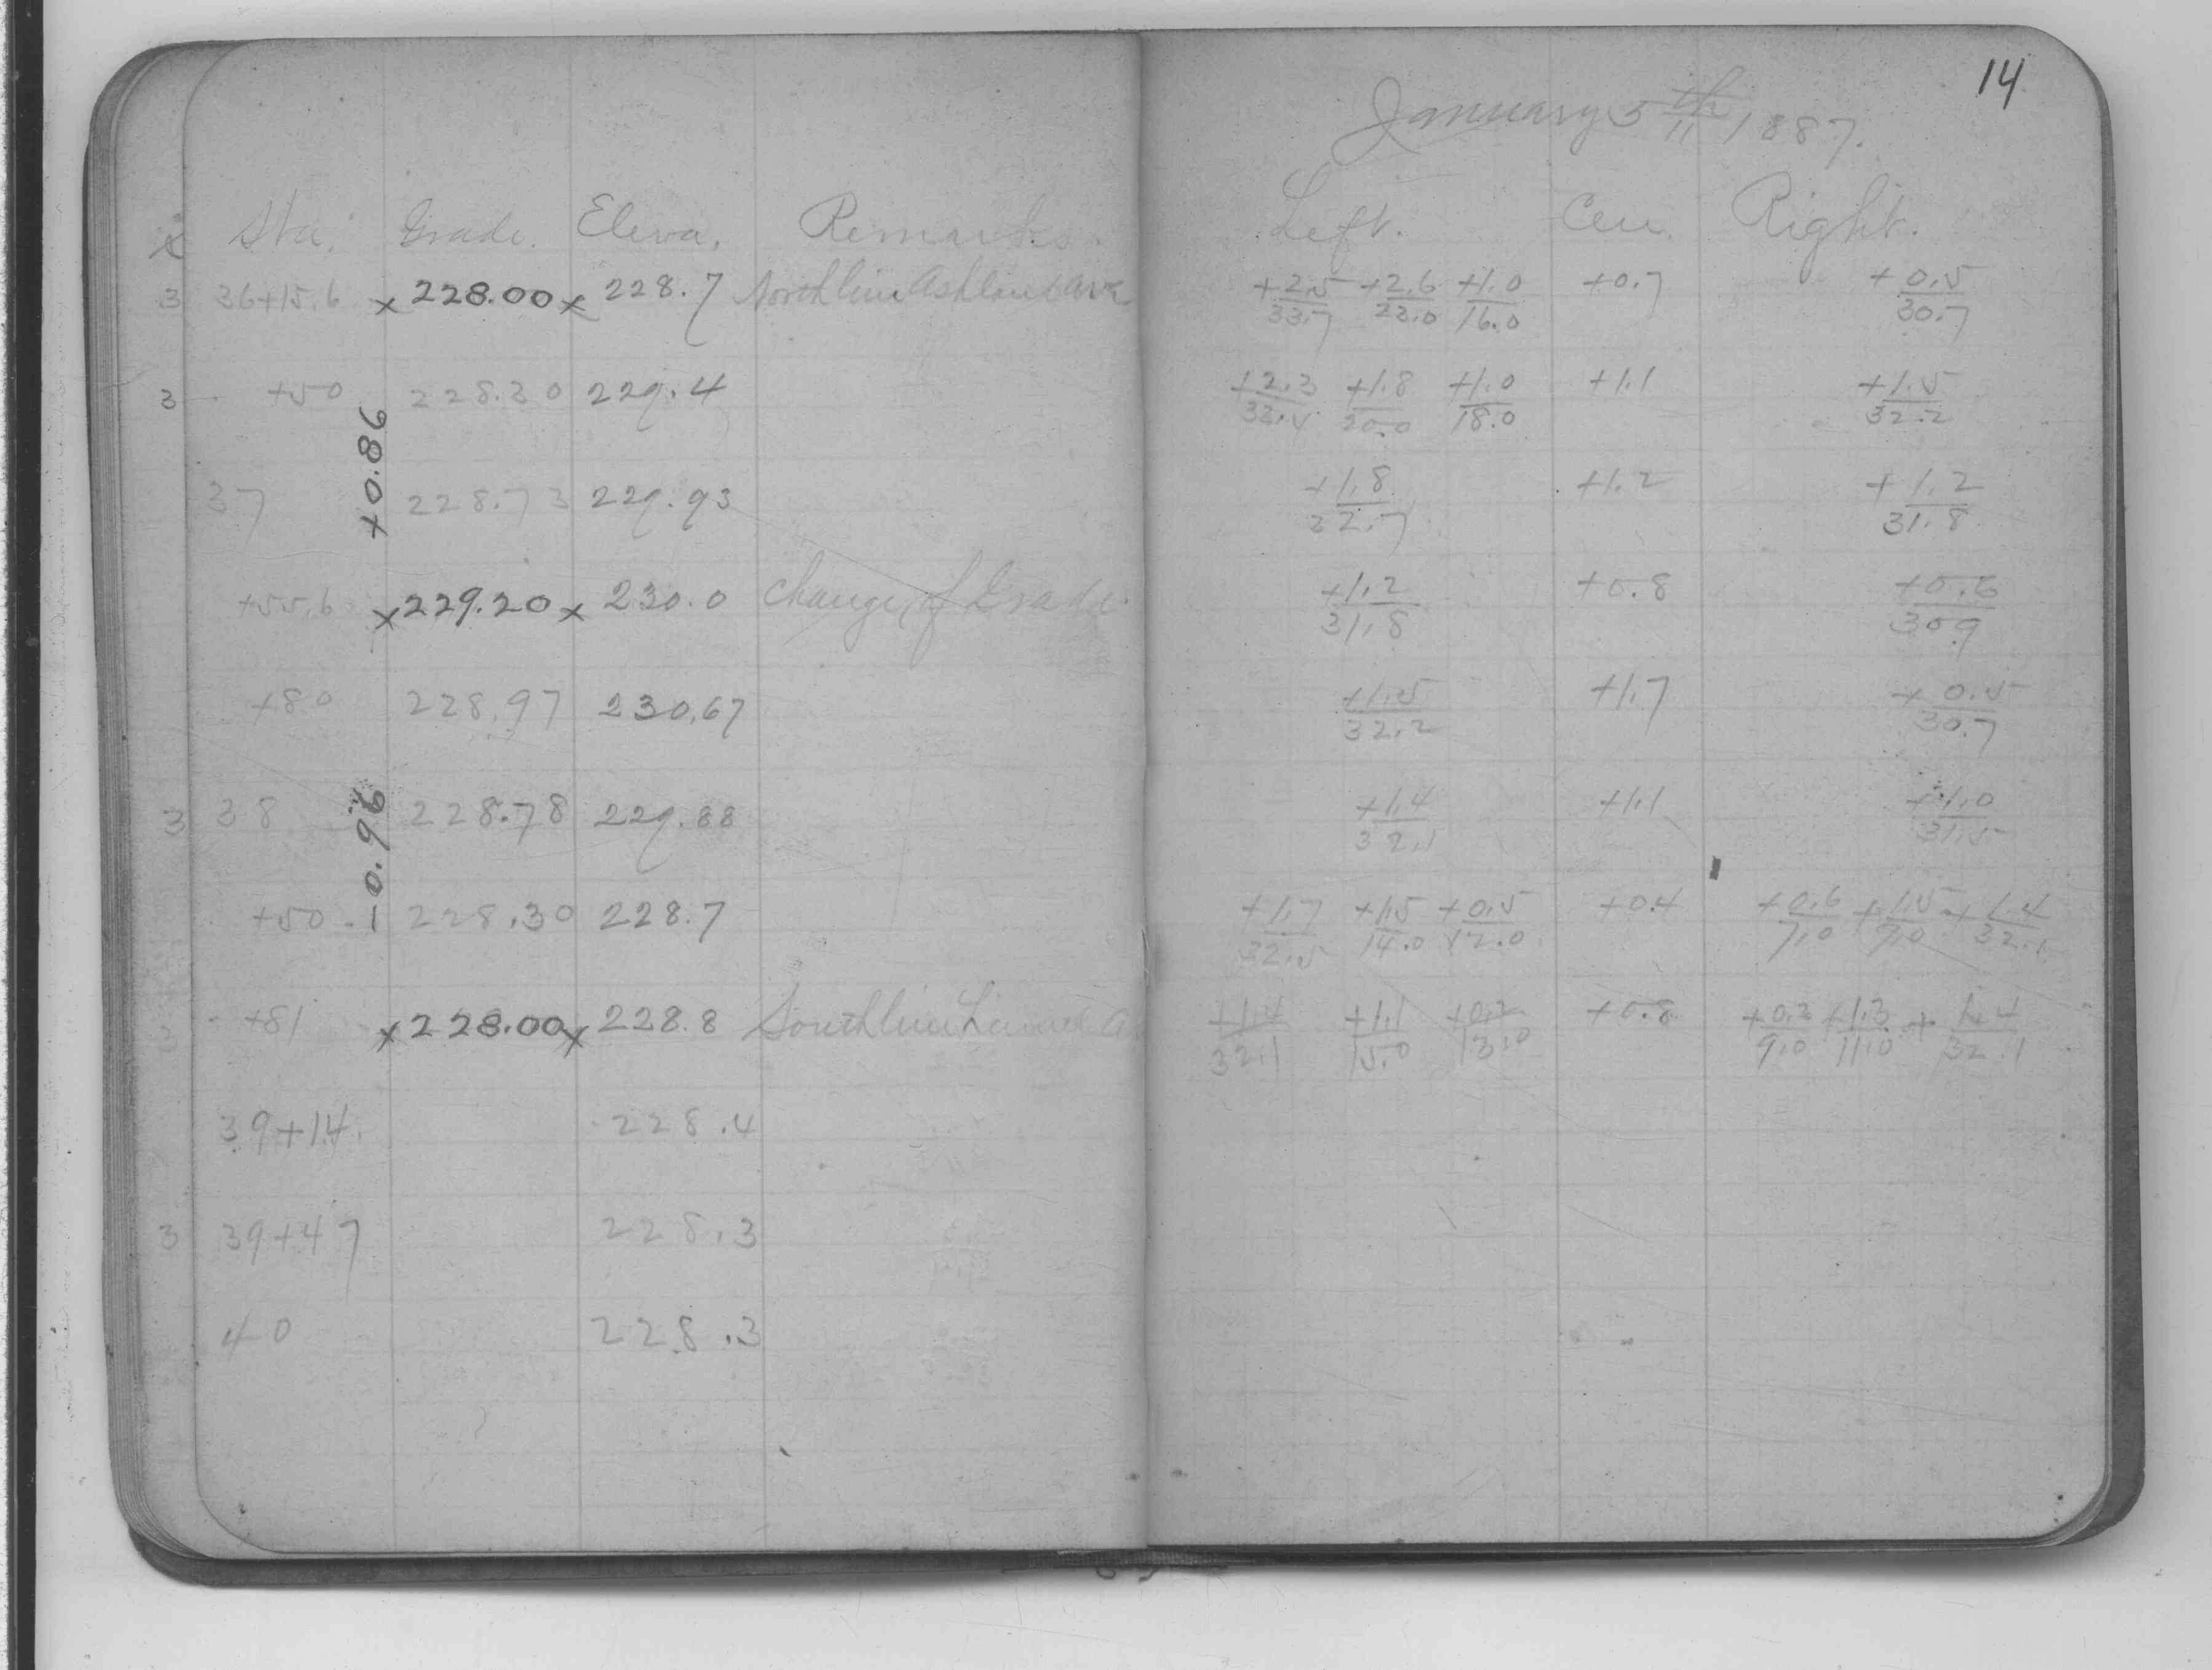 14
January 5th 1887.
x Sta. Grade. Eleva. Remarks. Left. Cen. Right.
3 36+15.6 x 228.00 x 228.7 North line Ashland Ave +2.5/33.7 +2.6/23.0 +1.0/16.0 +0.7 +0.5/30.7
3 +50 228.30 229.4 +2.3/33.4 +1.8/20.0 +1.0/18.0 +1.1 +1.5/32.2
+0.86
37 228.73 229.93 +1.8/32.7 +1.2 +1.2/31.8
+55.6 x 229.20 x 230.0 Change of Grade +1.2/31.8 +0.8 +0.6/30.9
+80 228.97 230.67 +1.5/32.2 +1.7 +0.5/30.7
3 38 228.78 229.88 +1.4/32.1 +1.1 +1.0/31.5
-0.96
+50 228.30 228.7 +1.7/32.5 +1.5/14.0 +0.5/12.0 +0.4 +0.6/7.0 +1.5/9.0 +1.4/32.1
+81 x 228.00 x 228.8 South line Laurel A. +1.4/32.1 +1.1/15.0 +0.2/13.0 +0.8 +0.2/9.0 +1.3/11.0 +1.4/32.1
39+14. 228.4
3 39+47 228.3
40 228.3